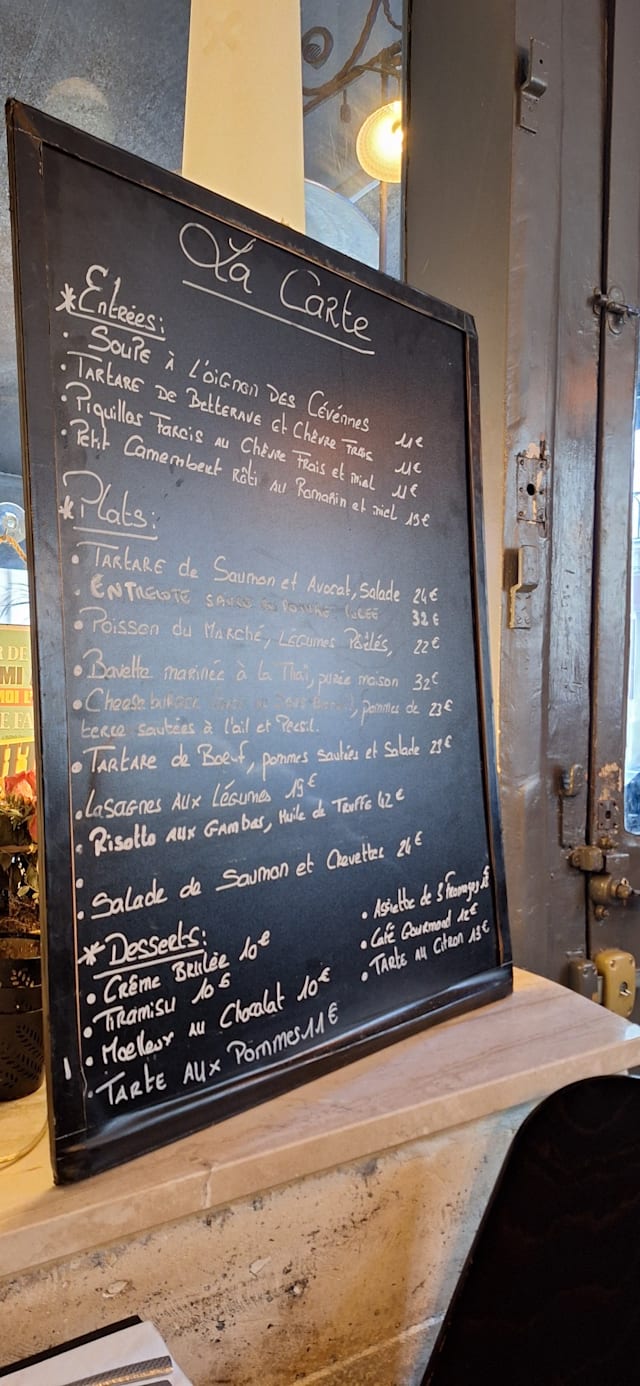 La Carte
*Entrées:
• Soupe à l'oignon des Cévennes 11€
• Tartare de Betterave et Chèvre Frais 11€
• Piquillos Farcis au Chèvre Frais et miel 11€
• Petit Camembert Rôti au Romarin et miel 15€
*Plats:
• Tartare de Saumon et Avocat, Salade 24€
• Entrecôte 32€
• Poisson du Marché, Légumes Poêlés, 22€
• Bavette marinée à la Thaï, purée maison 32€
• Cheeseburger pommes de 23€
terre sautées à l'ail et Persil.
• Tartare de Bœuf, pommes sautées et Salade 23€
• Lasagnes aux Légumes 19€
• Risotto aux Gambas, Huile de Truffe
• Salade de Saumon et Crevettes 24€
*Desserts:
• Crème Brûlée 10€
• Tiramisu 10€
• Moelleux au Chocolat 10€
• Tarte aux Pommes 11€
• Assiette de 3 Fromages
• Café Gourmand 12€
• Tarte au Citron 13€